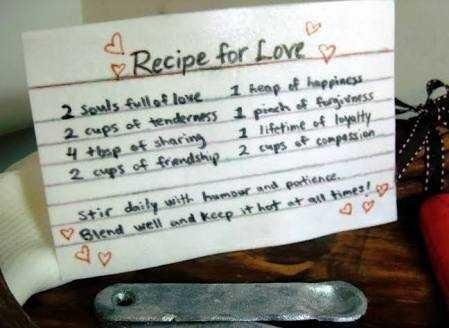 Recipe for Love
2 souls full of love 1 heap of happiness
2 cups of tenderness 1 pinch of forgivness
4 tbsp of sharing 1 lifetime of loyalty
2 cups of friendship 2 cups of compassion
Stir daily with humour and patience.
Blend well and keep it hot at all times!